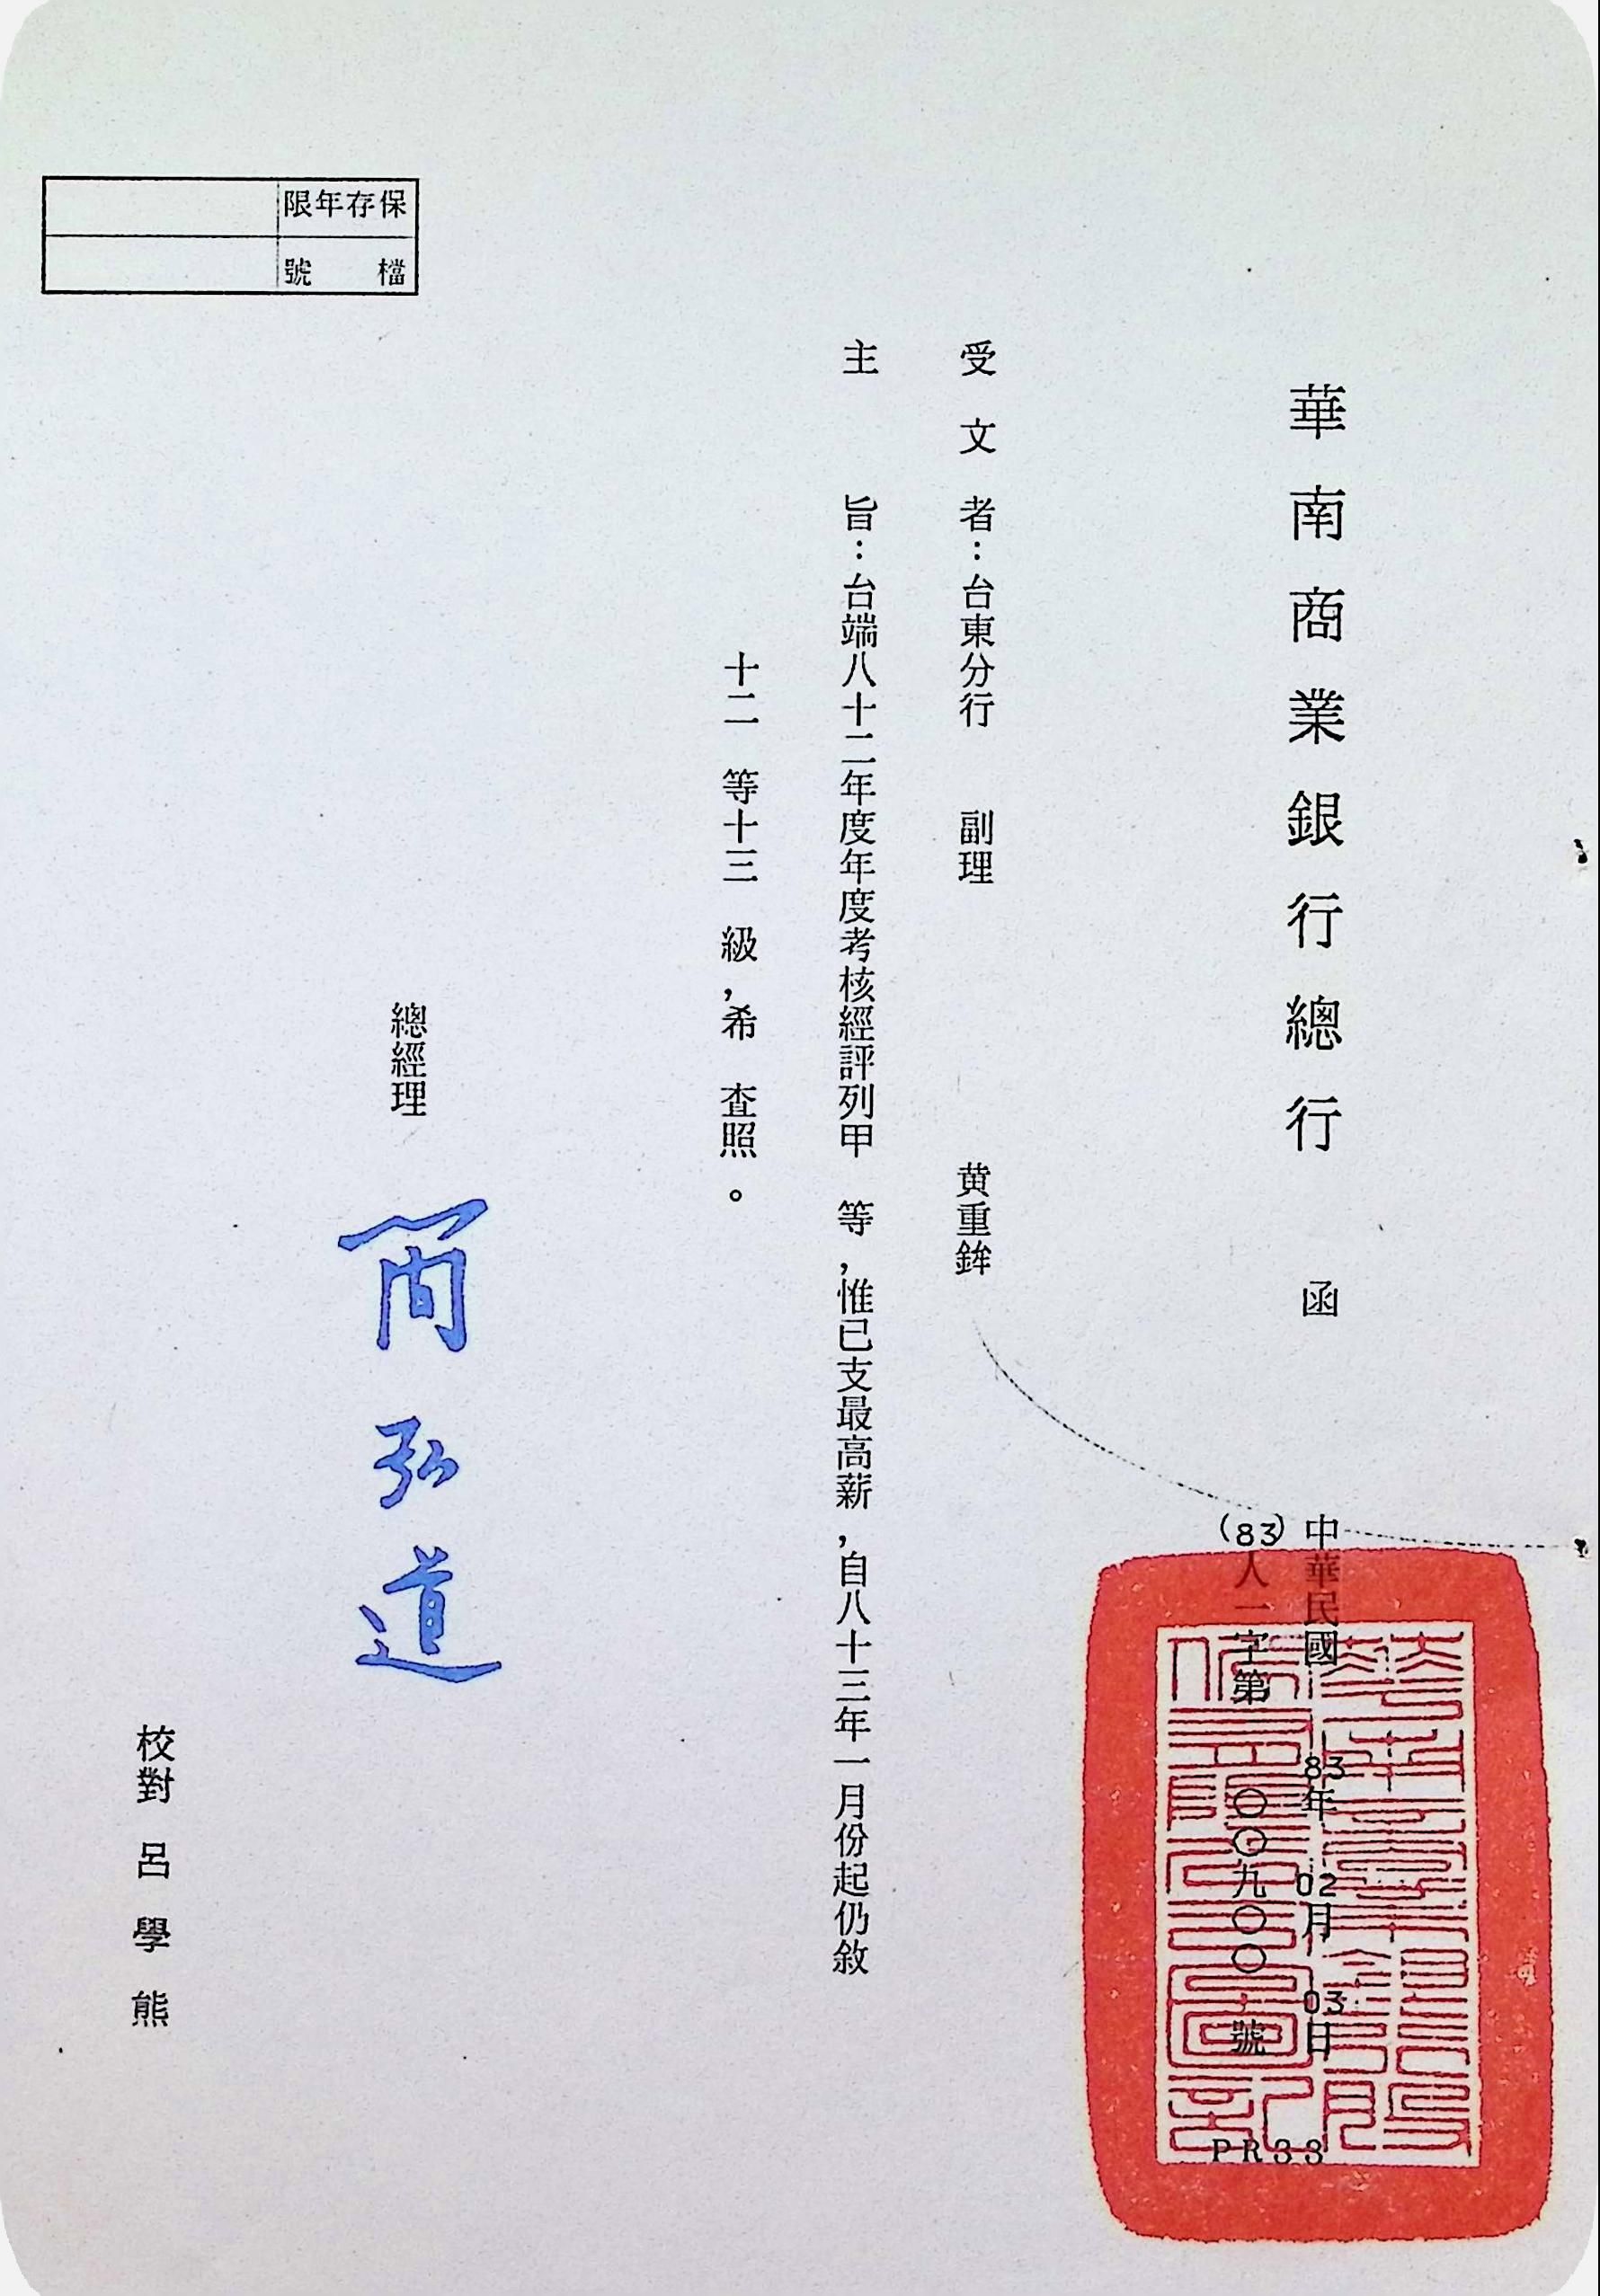 華南商業銀行總行 函
中華民國 83年 02月 03日
(83)人一字第 〇〇九〇〇 號
PR33
受文者：台東分行 副理 黄重鉾
主旨：台端八十二年度年度考核經評列甲 等，惟已支最高薪，自八十三年一月份起仍敘
十二 等十三 級，希 查照。
總經理 簡弘道
校對 呂學熊
保存年限
檔號